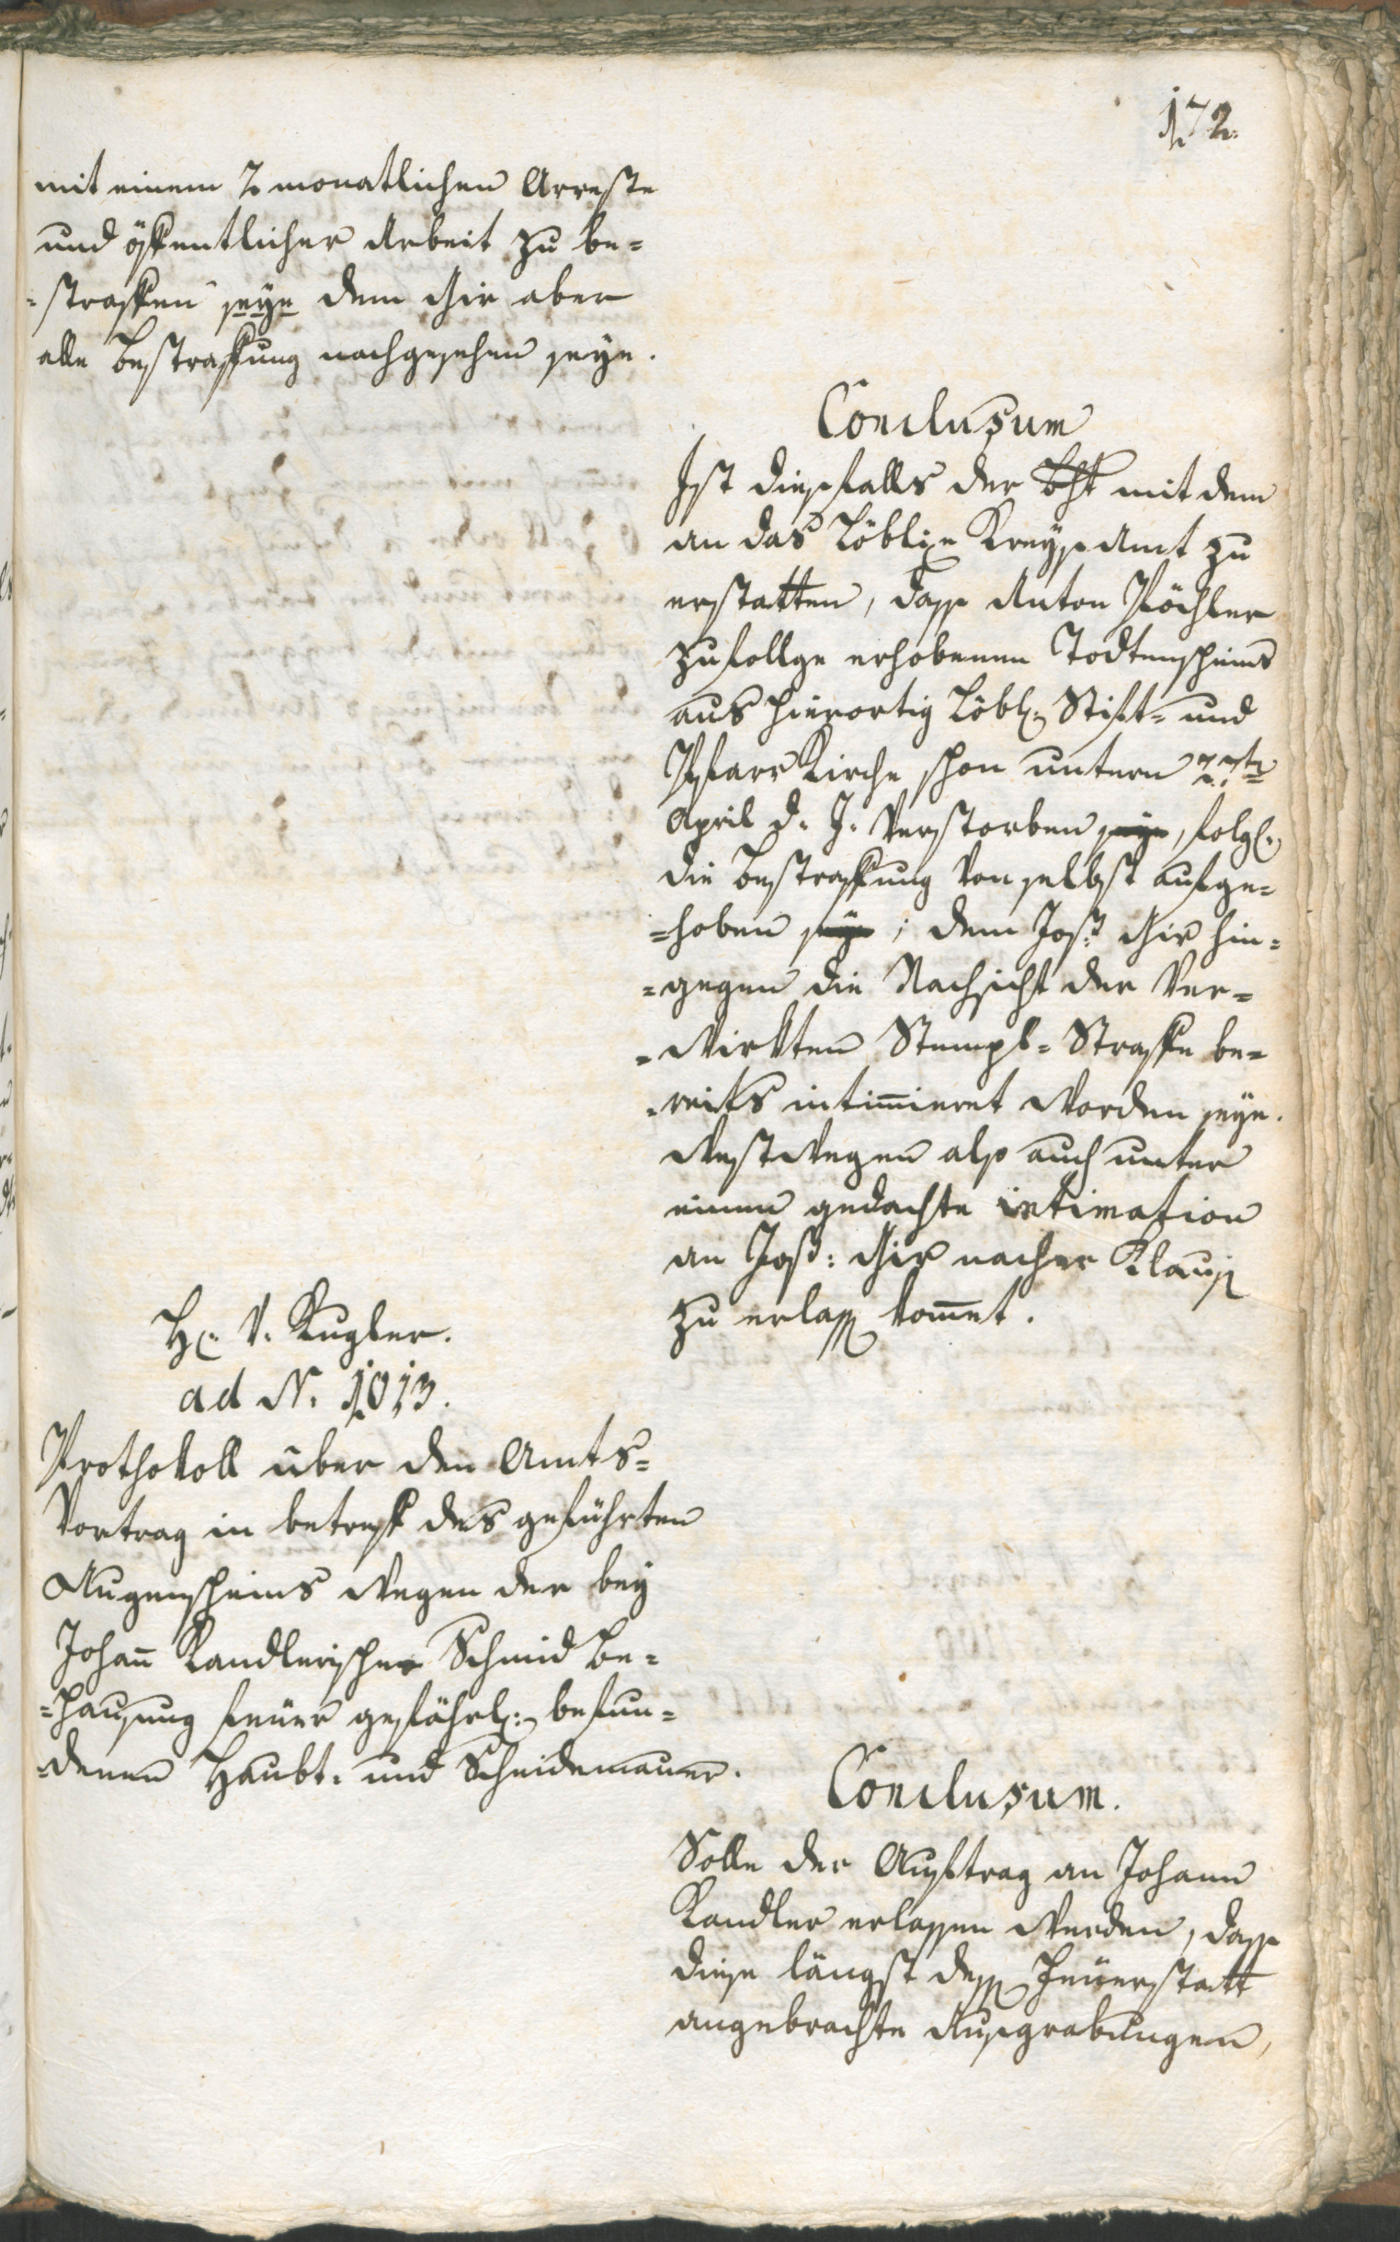 172.
mit einem 2 monatlichen Arreste
und öffentlicher Arbeit zu be-
-straffen seye dem Gir aber
alle Bestraffung nachgesehen seye.
Conclusum
Ist diesfalls der mit dem
an das Löbliche Kreysamt zu
erstatten, dass Anton Pöchler
zufollge erhobenen Todtenscheins
aus hierortig Löbl: Stift- und
Pfarr Kirche schon untern
April d. J. Verstorben seye, folgl:
die Bestraffung Von selbst aufge-
-hoben seye; dem Jos: Gir hin-
-gegen die Nachsicht der Ver-
-wirkten Stempl-Straffe be-
-reits intim̄ieret worden seye.
Westwegen also auch unter
einem gedachte intimation
an Jos: Gir nacher Klaus
zu erlass kom̄et.
H: V. Kugler.
ad N. 1013.
Prothokoll über den Amts-
Vortrag in betreff des geführten
Augenscheins wegen der bey
Johan̄ Kandlerischer Schmid Be-
-hausung feüer gefährl: befun-
-denen Haubt- und Scheidemauer.
Conclusum.
Solle der Auftrag an Johann
Kandler erlassen werden, dass
diese längst dess Feüerstatt
angebrachte Ausgrabungen,